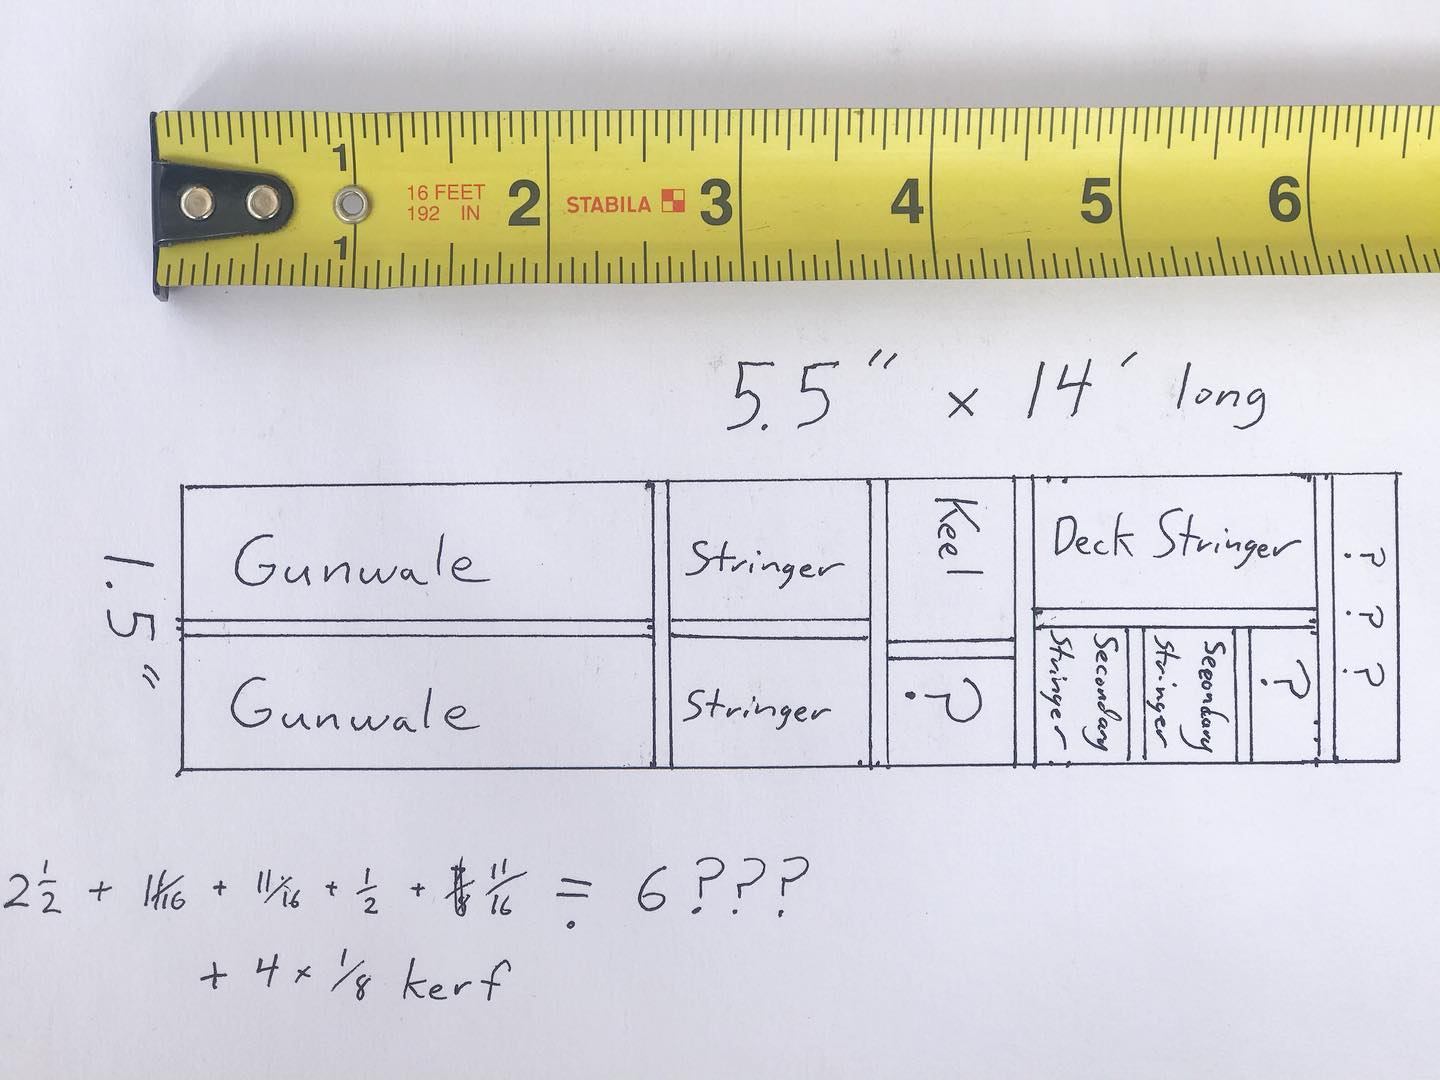 1 2 3 4 5 6
16 FEET
192 IN
STABILA
1
5.5" x 14' long
1.5"
Gunwale
Stringer
Keel
Deck Stringer
? ? ?
Gunwale
Stringer
?
Secondary
Stringer
Secondary
stringer
?
2 1/2 + 11/16 + 11/16 + 1/2 + 11/16 = 6 ???
+ 4 x 1/8 kerf